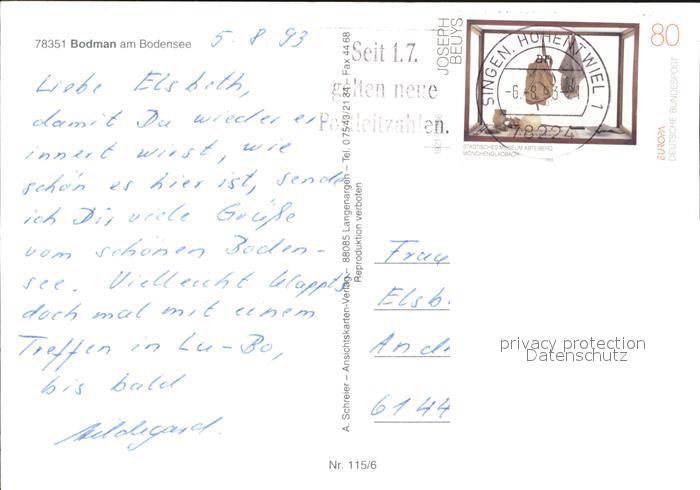 78351 Bodman am Bodensee
5. 8. 93
Liebe Elsbeth,
damit Du wieder er
innert wirst, wie
schön es hier ist, sende
ich Dir viele Grüße
vom schönen Boden-
see. Vielleicht klappts
doch mal mit einem
Treffen in Lu-Bo,
bis bald
Hildegard.
A. Schreier – Ansichtskarten-Verlag – 88085 Langenargen – Tel. 07543/2134 · Fax 44 68
Reproduktion verboten
Seit 1.7.
gelten neue
Postleitzahlen.
JOSEPH
BEUYS
1921-1986
SINGEN, HOHENTWIEL 1
an
-6.-8.93-
78224
80
DEUTSCHE BUNDESPOST
EUROPA
STÄDTISCHES MUSEUM ABTEIBERG
MÖNCHENGLADBACH
Frau
Elsb
And
6144
privacy protection
Datenschutz
Nr. 115/6